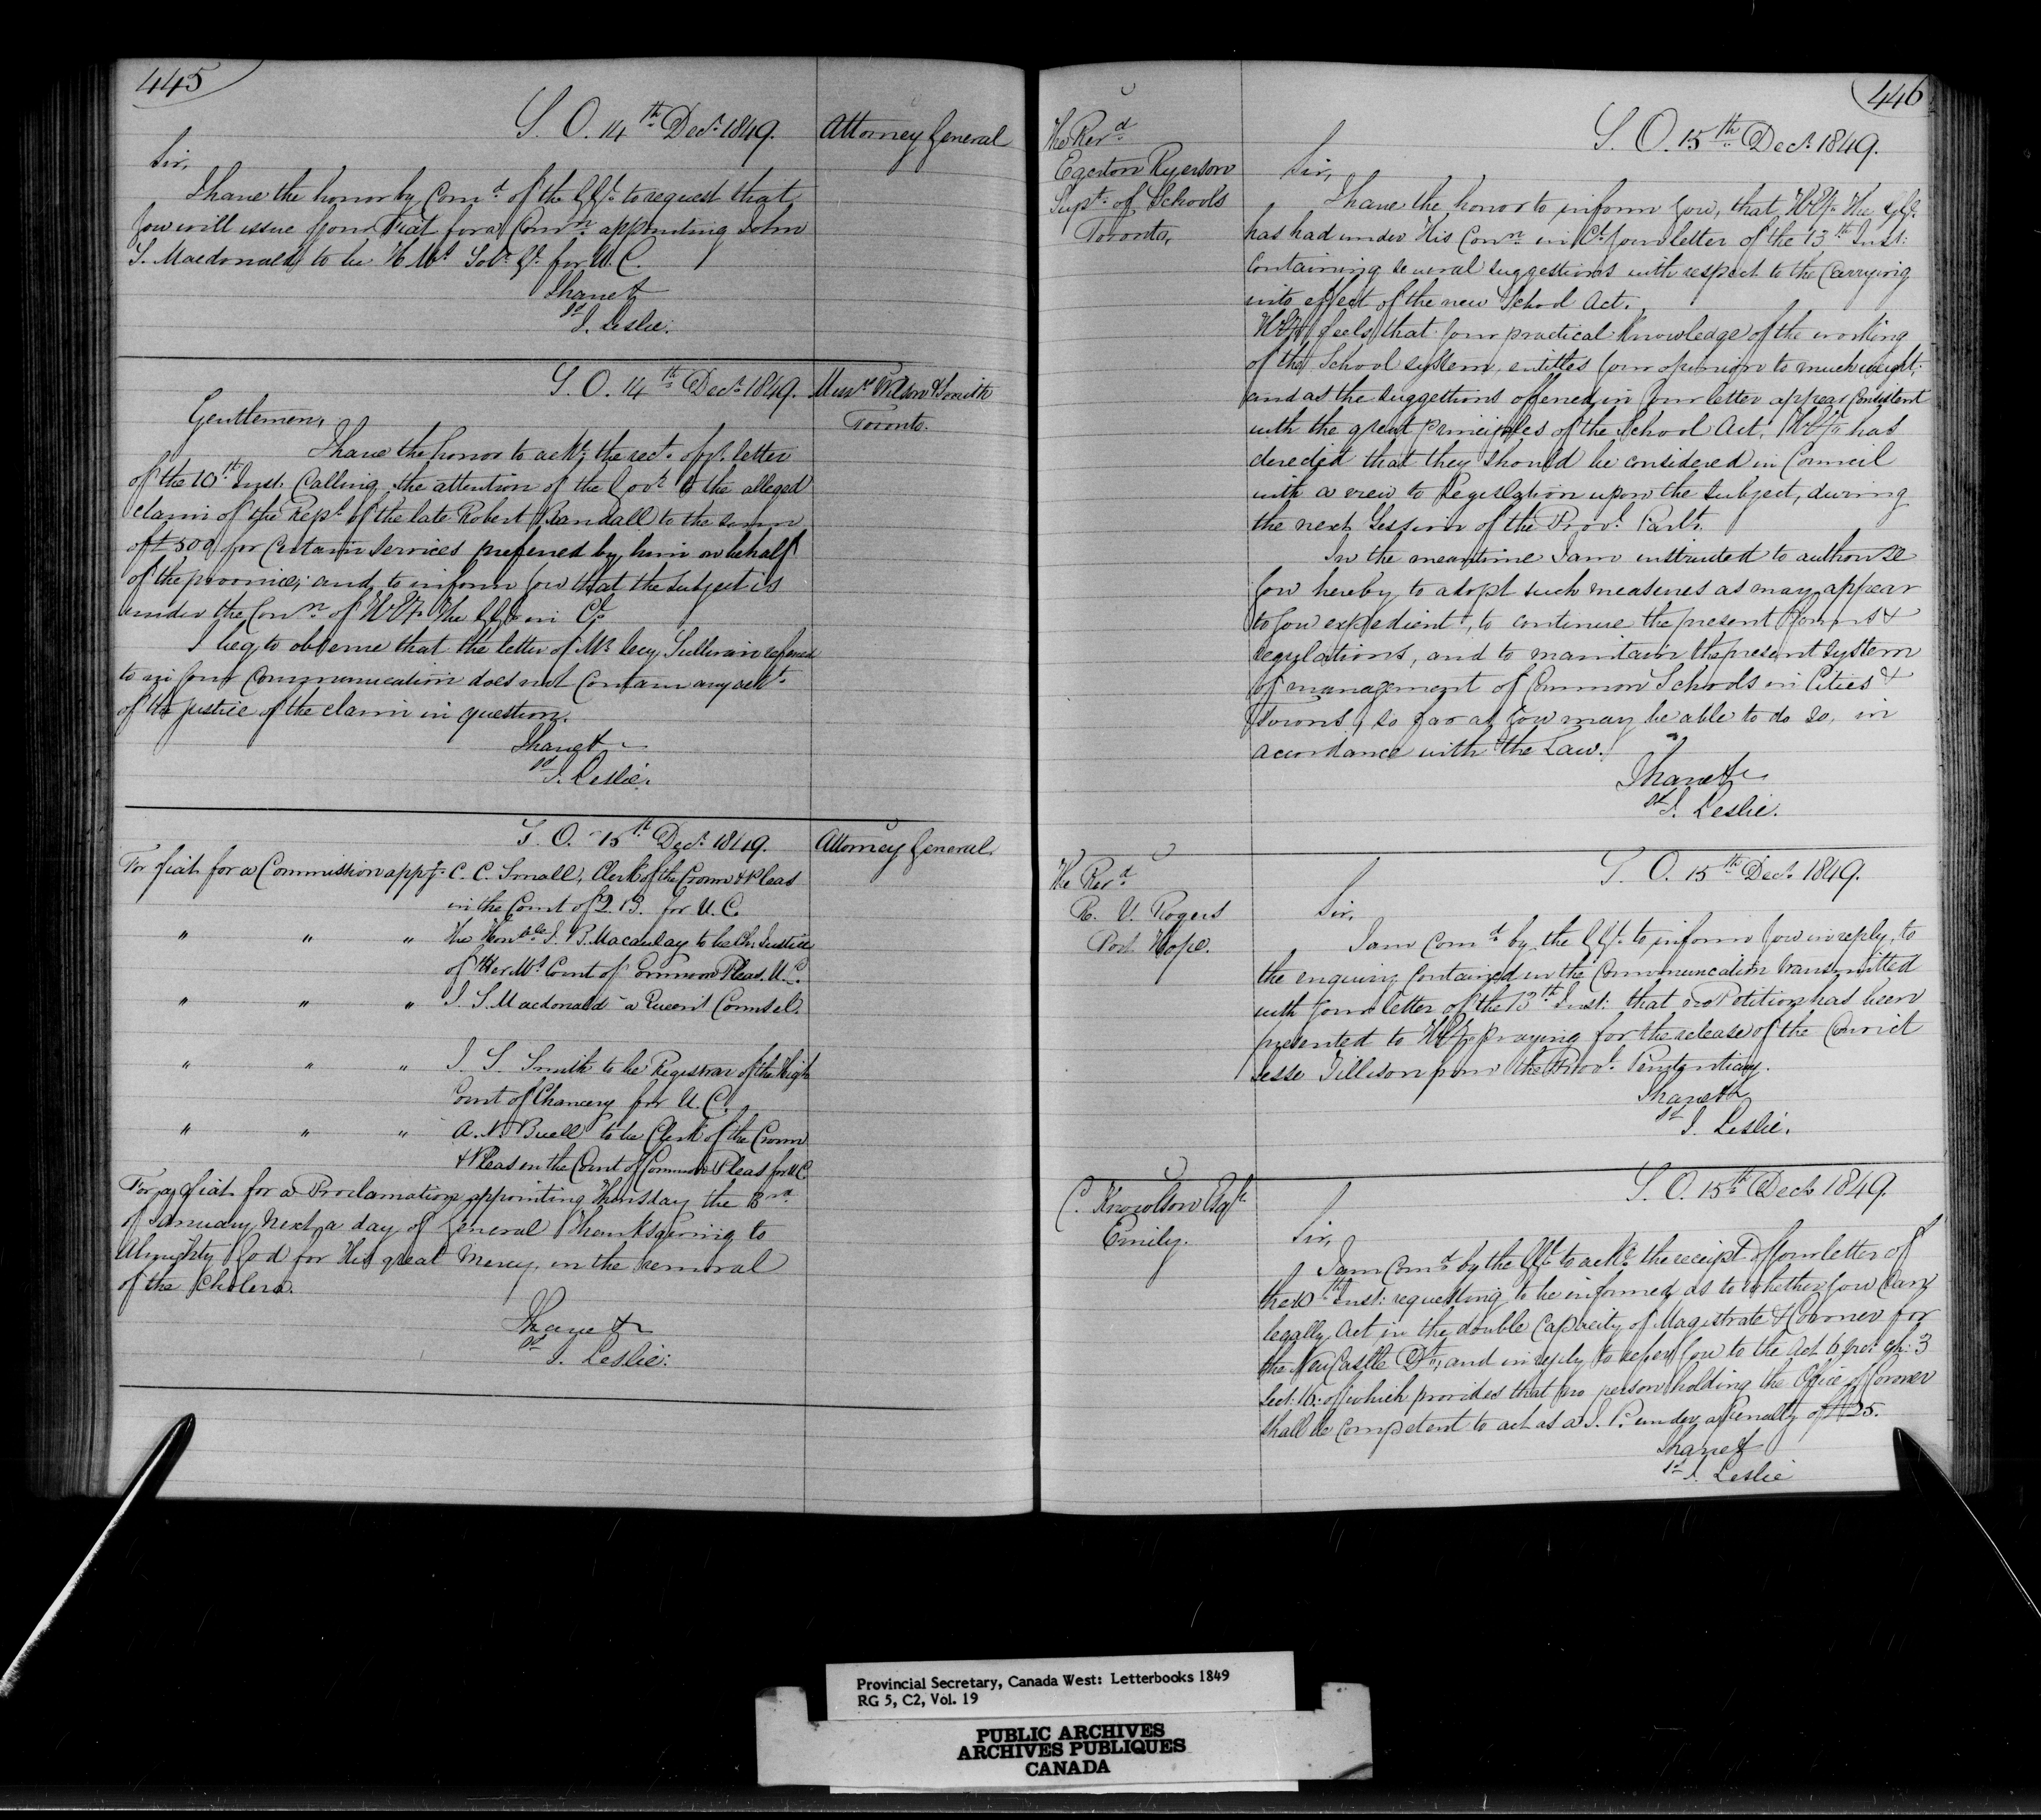 445
S. O. 14th Decr. 1849.
Attorney General
Sir,
I have the honor by Comd. of the GGl. to request that
you will issue your Fiat for a Comn. appointing John
S. Macdonald to be H. Ms. Solr. Gl. for U. C.
I have &
sd J. Leslie.
S. O. 14th Decr. 1849.
Messrs Wilson & Smith
Toronto.
Gentlemen,
I have the honor to ackl. the rect. of yr. letter
of the 10th Inst. Calling the attention of the Govt. to the alleged
claim of the Rept. of the late Robert Randall to the sum
of £500 for Certain Services preferred by him on behalf
of the province; and to inform you that the subject is
under the Conn. of H.Ey. the GGl. in Cl.
I beg to observe that the letter of Mr. Secy. Sullivan referred
to in your Communication does not Contain any ackt.
of the justice of the claim in question.
I have &c
sd J. Leslie.
S. O. 15th Decr. 1849.
Attorney General.
For fiat for a Commission appg. C. C. Small, Clerk of the Crown & Pleas
in the Court of Q. B. for U. C.
" " " The Honble J. B. Macaulay to be Ch. Justice
of Her Ms. Court of Common Pleas. U. C.
" " " J. S. Macdonald a Queen's Counsel.
" " " J. S. Smith to be Registrar of the High
Court of Chancery for U. C.
" " " A. N. Buell to be Clerk of the Crown
& Pleas in the Court of Common Pleas for U. C.
For a fiat for a Proclamation appointing Thursday the 3rd
of January Next, a day of General Thanksgiving to
Almighty God for His great Mercy, in the removal
of the Cholera.
I have &c
sd J. Leslie.
446
The Revd.
Egerton Ryerson
Supt. of Schools
Toronto,
S. O. 15th Decr. 1849.
Sir,
I have the honor to inform you, that H.Ey. the GGl.
has had under His Conn. in Cl. your letter of the 13th Inst:
containing several suggestions with respect to the Carrying
into effect of the new School Act.
H.Ey. feels that your practical Knowledge of the working
of the School system, entitles your opinion to much weight;
and as the suggestions offered in your letter appear Consistent
with the great principles of the School Act, H.Ey. has
directed that they should be considered in Council
with a view to Legislation upon the subject, during
the next Session of the Provl. Parlt.
In the meantime I am instructed to authorise
you hereby to adopt such measures as may appear
to you expedient, to continue the present forms &
regulations, and to maintain the present system
of management of Common Schools in Cities &
Towns, so far as you may be able to do so, in
accordance with the Law.
I have &c
sd J. Leslie.
The Revd.
R. V. Rogers
Port Hope.
S. O. 15th Decr. 1849.
Sir,
I am Comd. by the GGl. to inform you in reply, to
the enquiry contained in the Communication transmitted
with your letter of the 13th Inst: that no Petition has been
presented to H.Ey. praying for the release of the Convict
Jesse Tillison from the Provl. Penitentiary.
I have &c
sd J. Leslie.
C. Knowlson Esqr.
Emily.
S. O. 15th Decr. 1849.
Sir,
I am Comd. by the GGl. to ackl. the receipt of your letter of
the 10th Inst: requesting to be informed as to whether you Can
legally act in the double Capacity of Magistrate & Coroner for
the NewCastle Dt., and in reply to refer you to the Act 6 Vic: ch: 3
Sect: 16: of which provides that no person holding the Office of Coroner
shall be Competent to act as a J. P. under a Penalty of £25.
I have &
sd J. Leslie
Provincial Secretary, Canada West: Letterbooks 1849
RG 5, C2, Vol. 19
PUBLIC ARCHIVES
ARCHIVES PUBLIQUES
CANADA